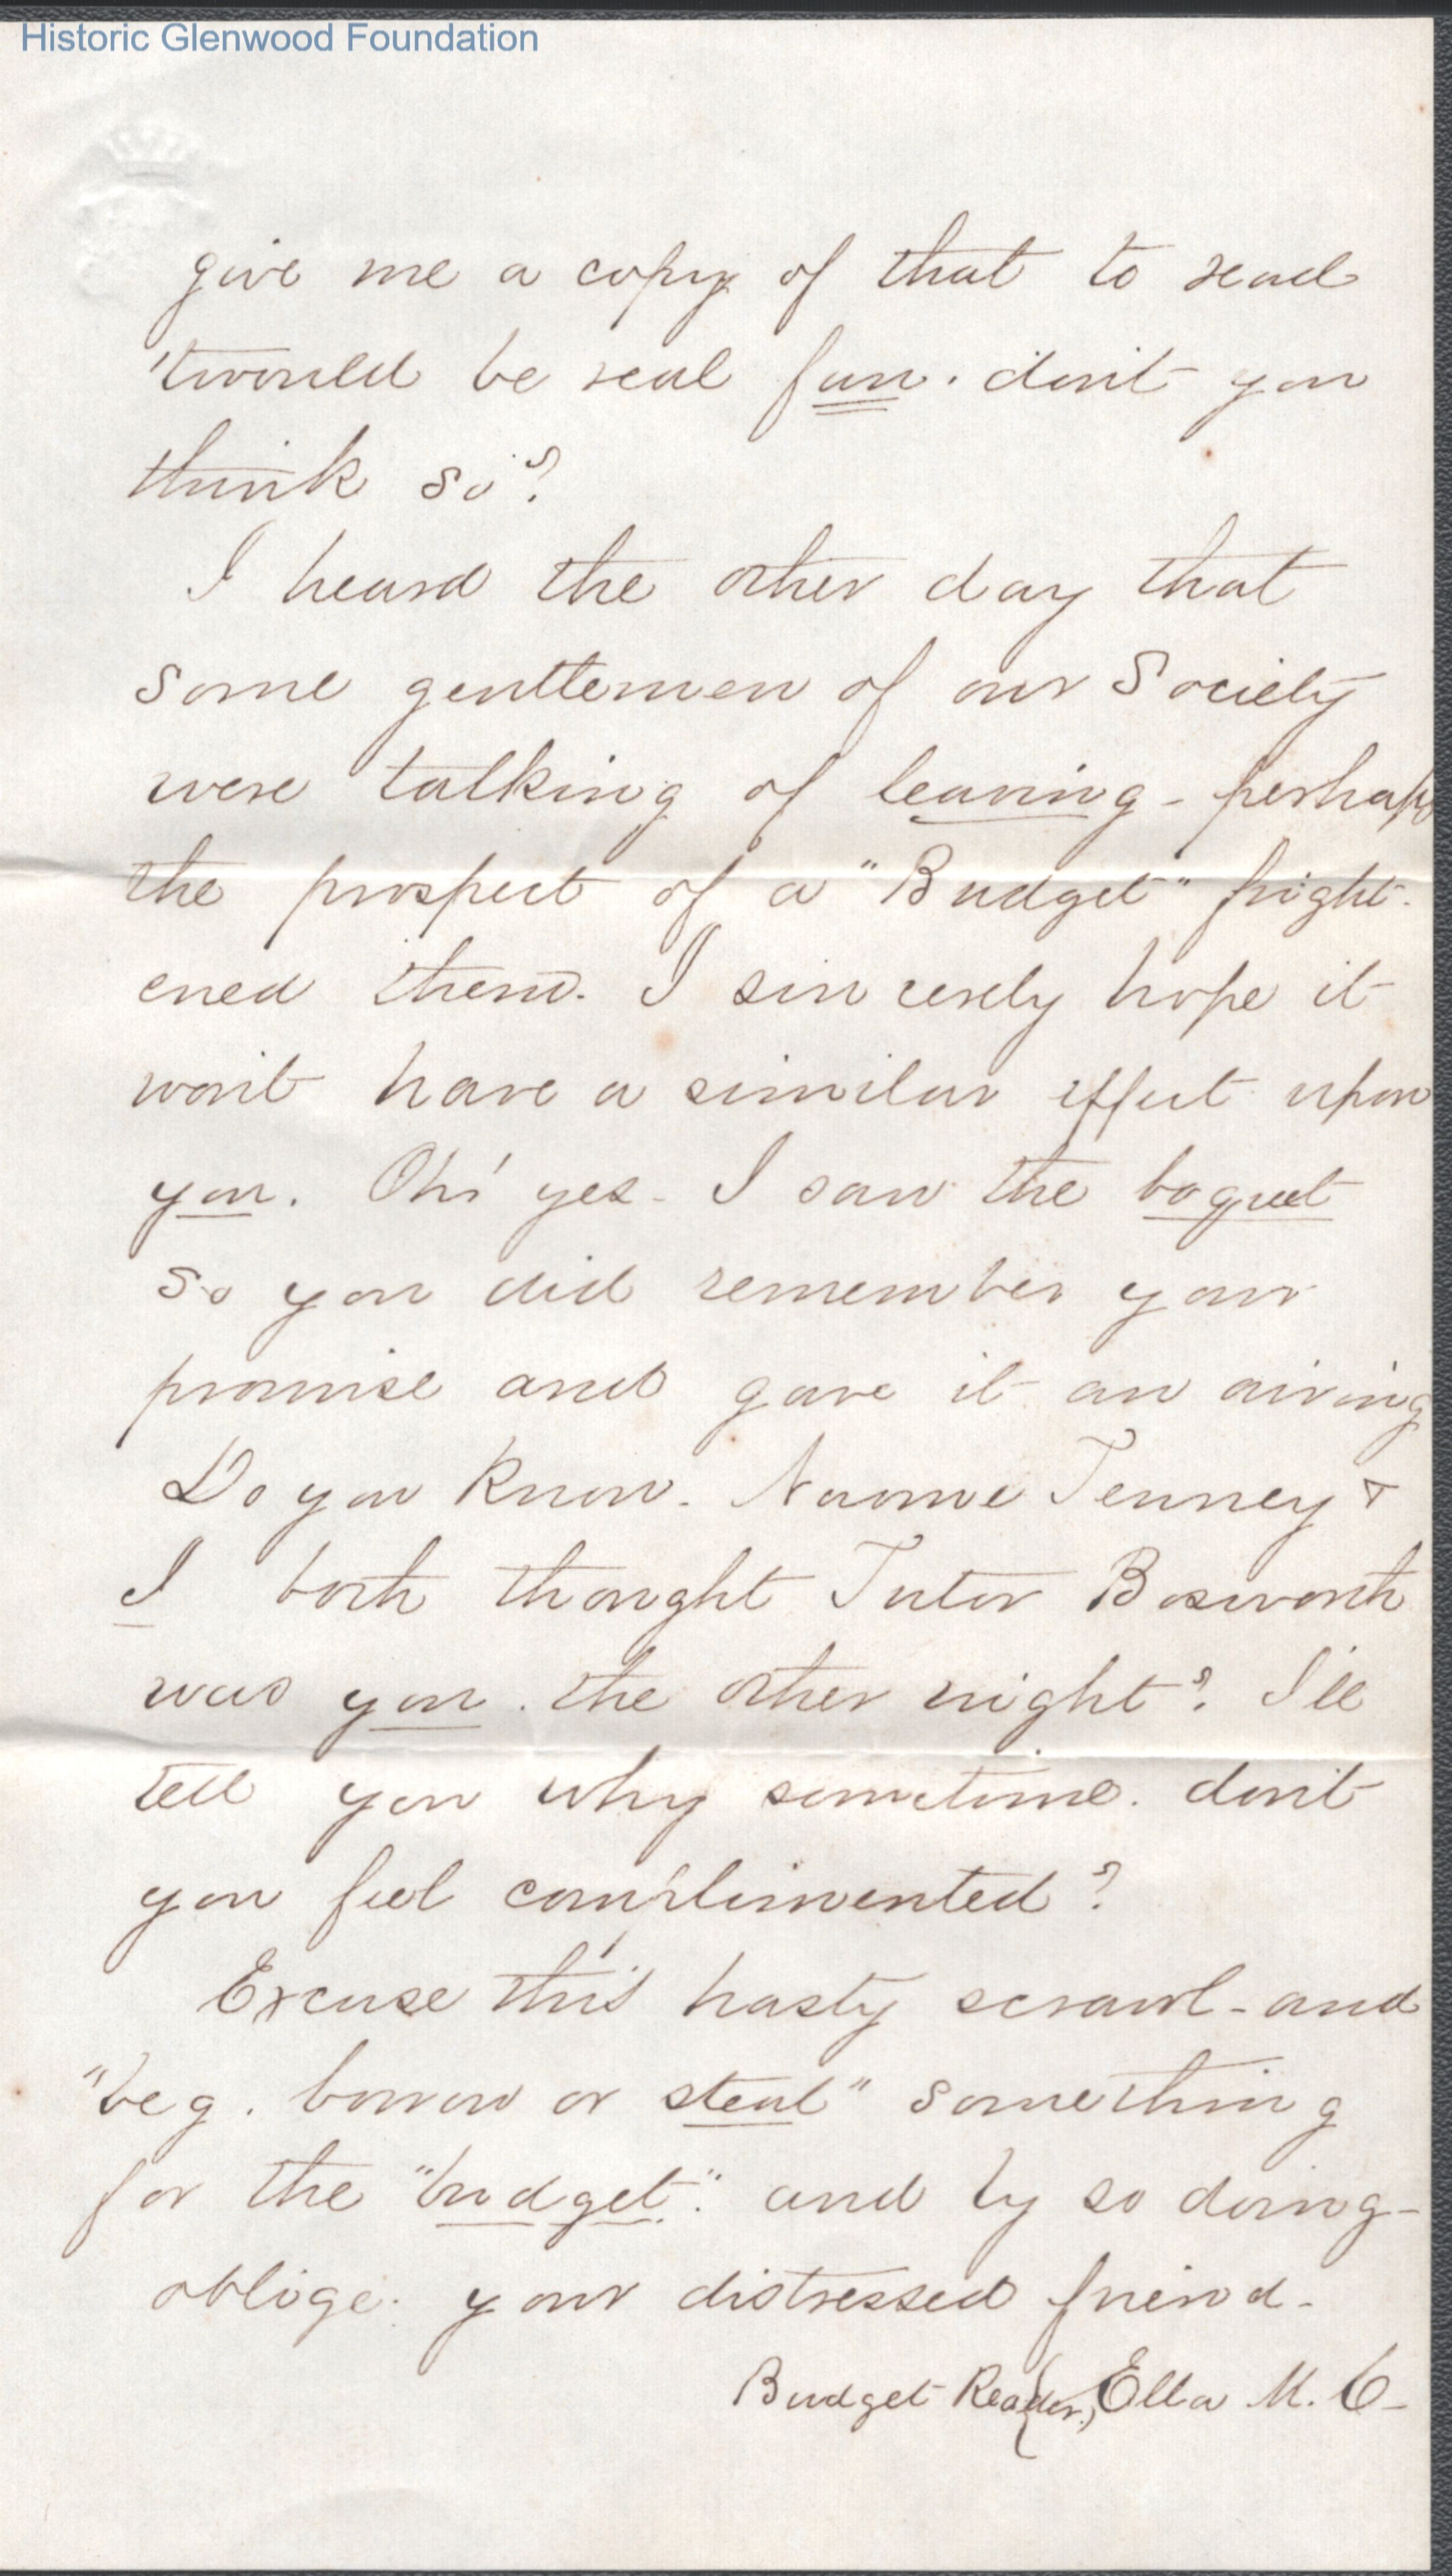 Historic Glenwood Foundation
give me a copy of that to read
'twould be real fun. don't you
think so?
I heard the other day that
some gentlemen of our Society
were talking of leaving - perhaps
the prospect of a "Budget" fright-
ened them. I sincerely hope it
won't have a similar effect upon
you. Oh! yes - I saw the boquet
so you did remember your
promise and gave it an airing
Do you know. Naomi Tenney &
I both thought Tutor Bosworth
was you. the other night? I'll
tell you why sometime. don't
you feel complimented?
Excuse this hasty scrawl - and
"beg. borrow or steal" something
for the "budget". and by so doing -
oblige. your distressed friend -
Budget Reader, Ella M. C -